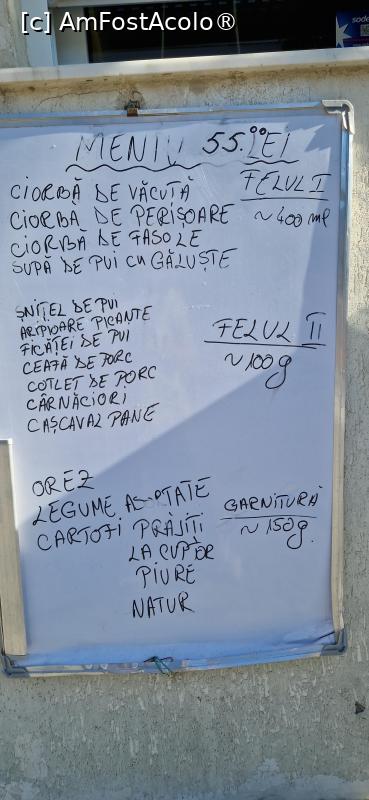 [c] AmFostAcolo®
MENIU 55.⁰⁰LEI
CIORBĂ DE VĂCUȚĂ
FELUL I
CIORBĂ DE PERIȘOARE
~400 ml
CIORBĂ DE FASOLE
SUPĂ DE PUI CU GĂLUȘTE
ȘNIȚEL DE PUI
ARIPIOARE PICANTE
FICĂȚEI DE PUI
FELUL II
CEAFĂ DE PORC
~100g
COTLET DE PORC
CÂRNĂCIORI
CAȘCAVAL PANE
OREZ
LEGUME ASORTATE
GARNITURĂ
CARTOFI PRĂJIȚI
~150g.
LA CUPTOR
PIURE
NATUR